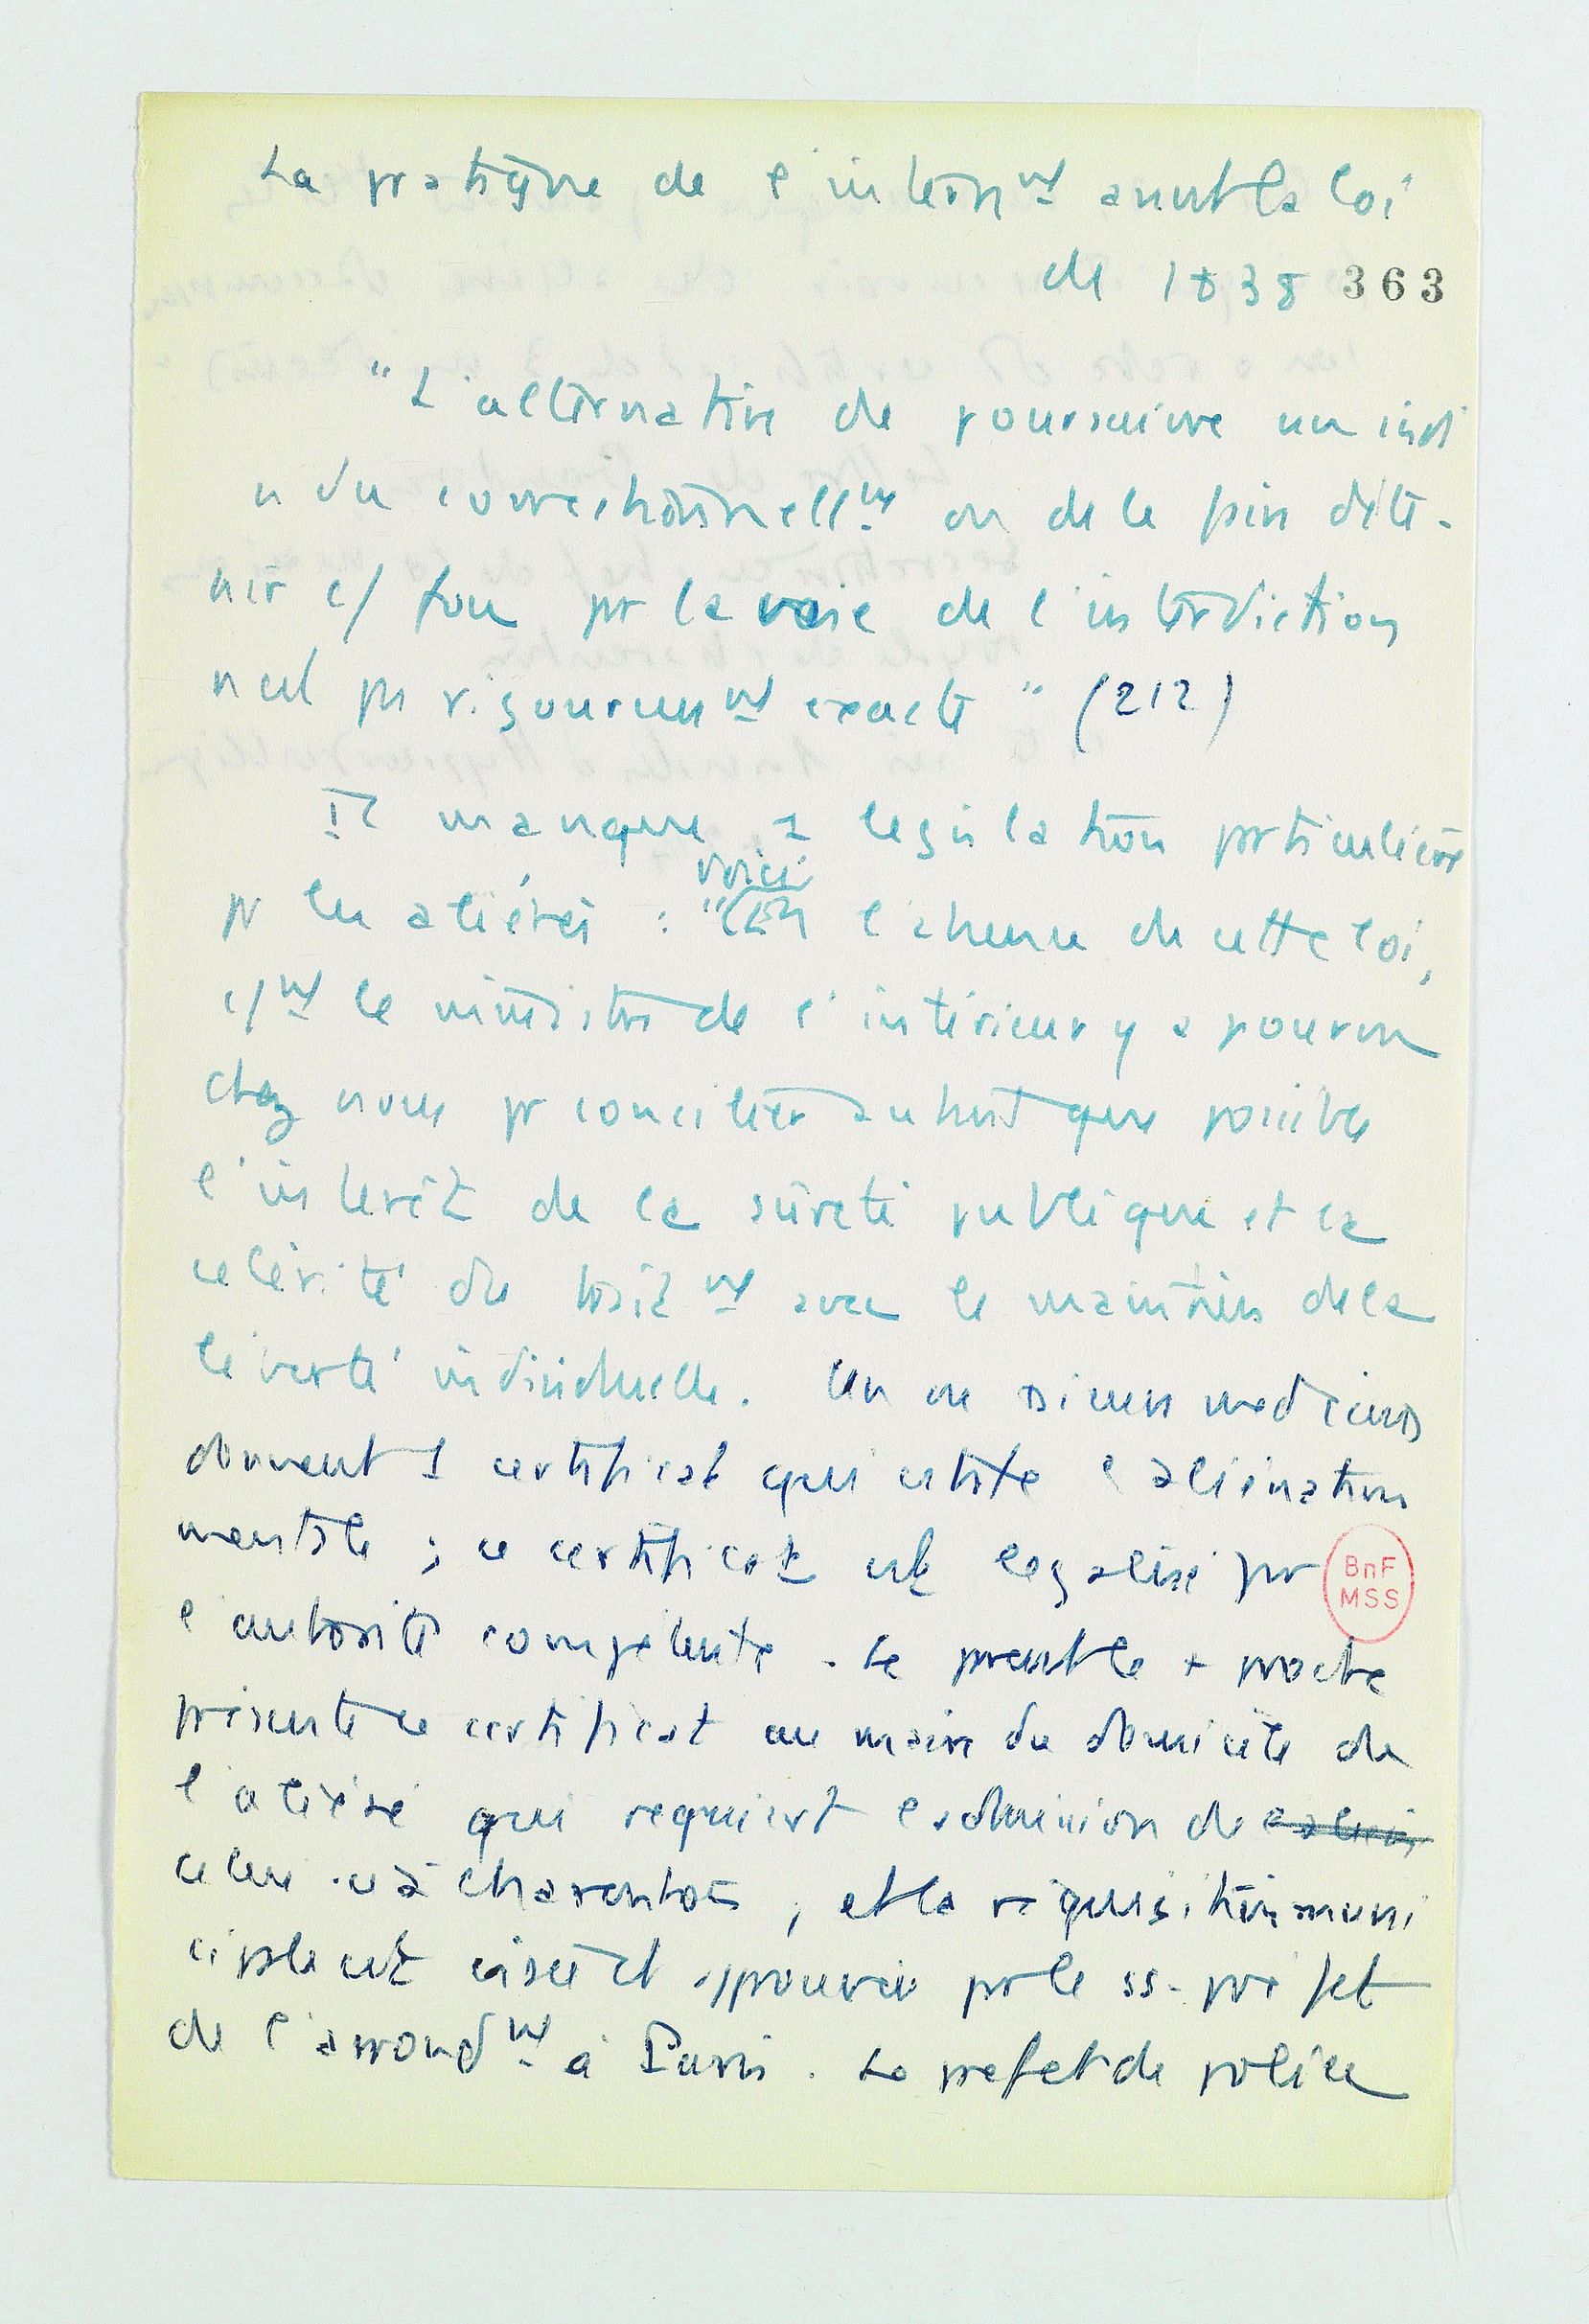 La pratique de l'internmt avant la loi
de 1838 363
"L'alternative de poursuivre un indi
vidu correctionnellmt ou de le faire déte-
nir c/ fou pr la voie de l'interdiction
n'est pas rigoureusmt exacte" (212)
Il manque 1 législation particulière
voici
pr les aliénés : "(En l'absence de cette loi,
c/mt le ministre de l'intérieur y a pourvu
chez nous pr concilier autant que possible
l'intérêt de la sûreté publique et la
célérité du traitmt avec le maintien de la
liberté individuelle. Un ou plusieurs médecins
donnent 1 certificat qui atteste l'aliénation
mentale ; ce certificat est légalisé par
BnF
MSS
l'autorité compétente. Le parent le + proche
présente ce certificat au maire du domicile de
l'aliéné qui requiert l'admission de
celui-ci à Charenton ; et la réquisition muni
cipale est visée et approuvée par le ss-préfet
de l'arrondmt à Paris. Le préfet de police